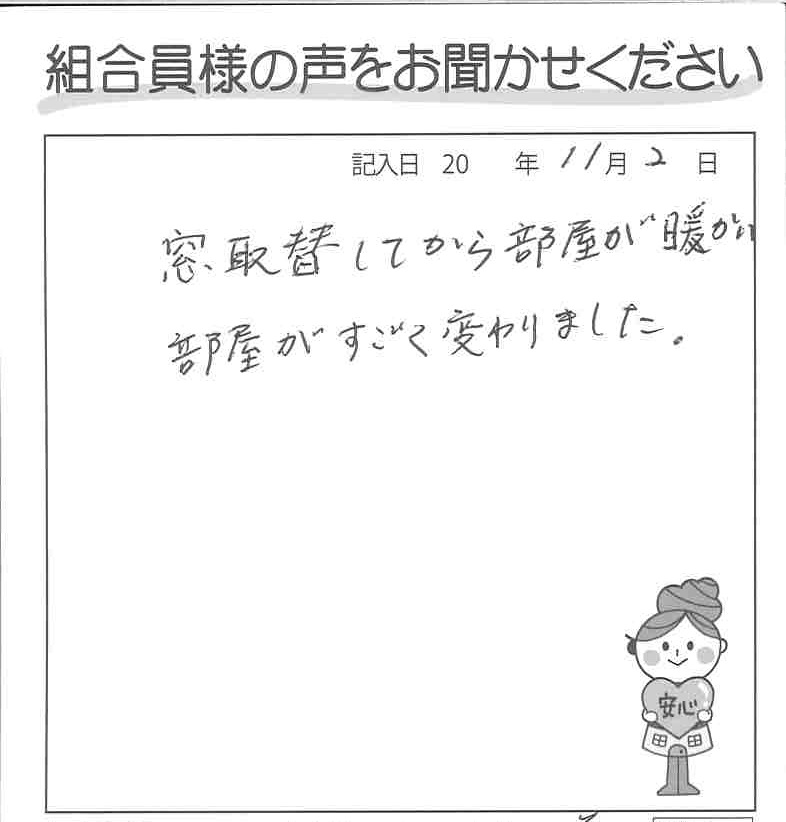 組合員様の声をお聞かせください
記入日 20 年 11月 2 日
窓取替してから部屋が暖かい
部屋がすごく変わりました。
安心